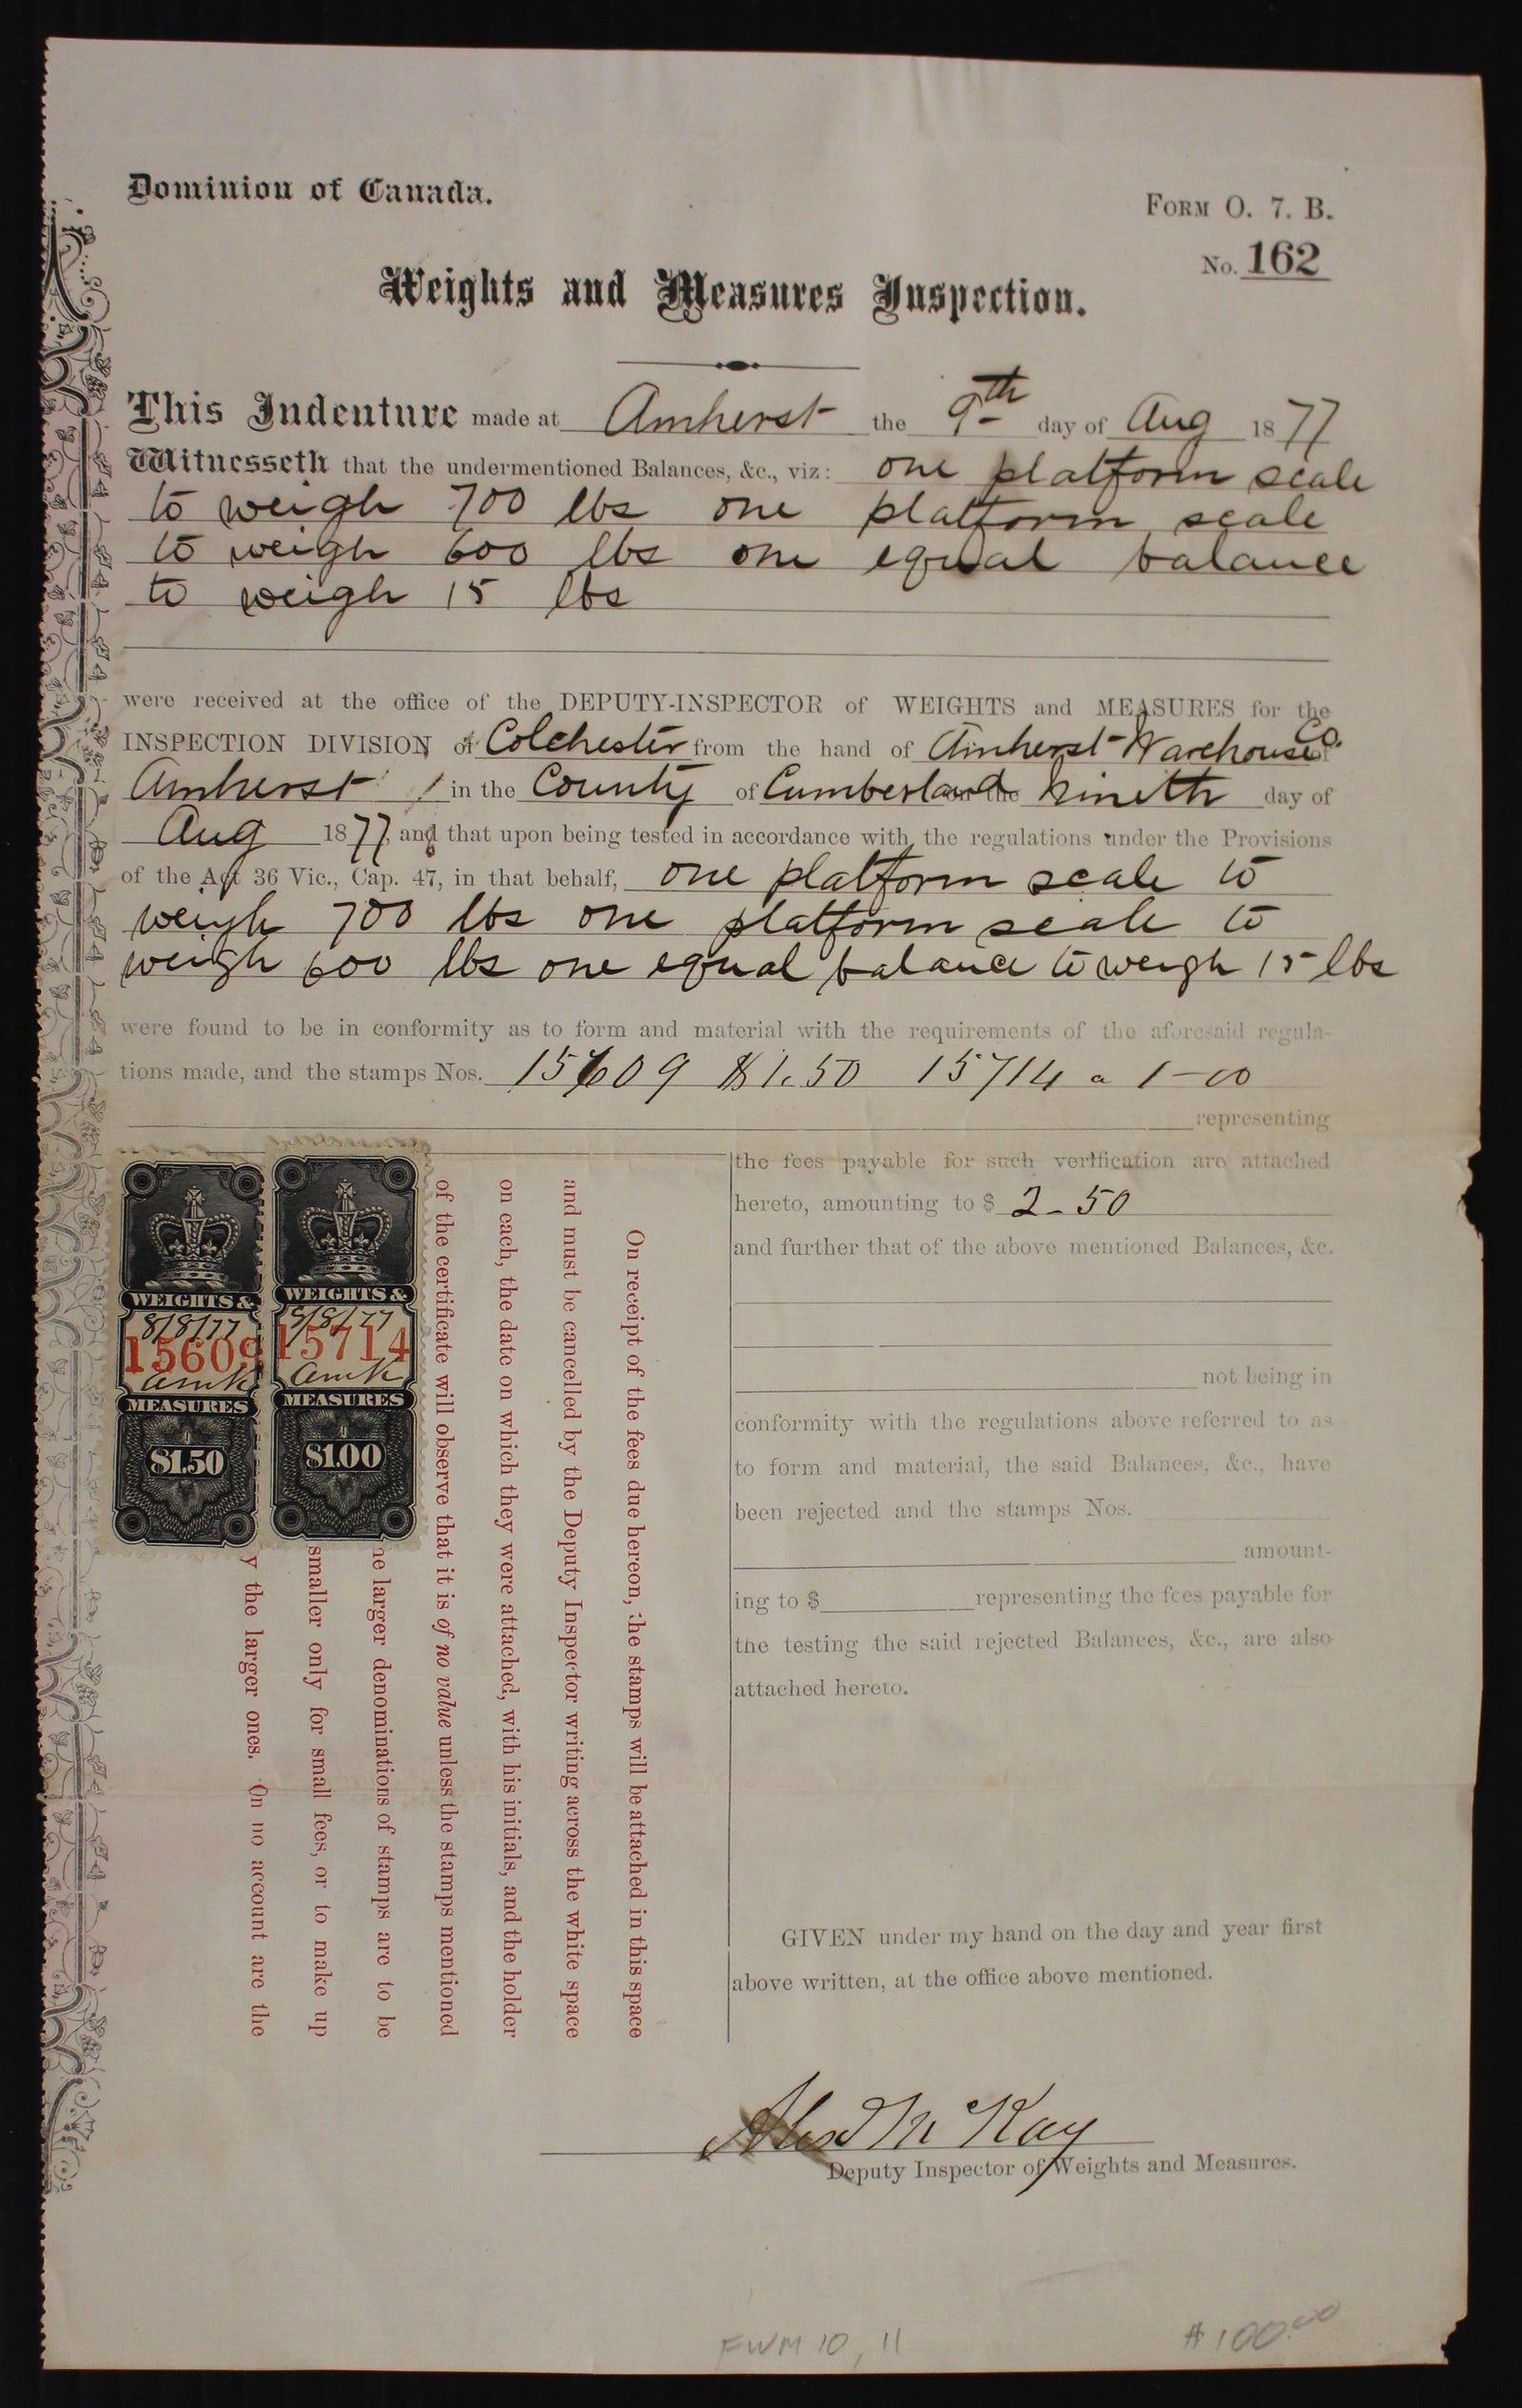 Dominion of Canada.
FORM O. 7. B.
No. 162
Weights and Measures Inspection.
This Indenture made at Amherst the 9th day of Aug 1877
Witnesseth that the undermentioned Balances, &c., viz: one platform scale
to weigh 700 lbs one platform scale
to weigh 600 lbs one equal balance
to weigh 15 lbs
were received at the office of the DEPUTY-INSPECTOR of WEIGHTS and MEASURES for the
INSPECTION DIVISION of Colchester from the hand of Amherst Warehouse Co.
Amherst in the County of Cumberland on the Nineth day of
Aug 1877, and that upon being tested in accordance with the regulations under the Provisions
of the Act 36 Vic., Cap. 47, in that behalf, one platform scale to
weigh 700 lbs one platform scale to
weigh 600 lbs one equal balance to weigh 15 lbs
were found to be in conformity as to form and material with the requirements of the aforesaid regula-
tions made, and the stamps Nos. 15609 $1.50 15714 a 1-00
representing
the fees payable for such verification are attached
hereto, amounting to $ 2-50
and further that of the above mentioned Balances, &c.
not being in
conformity with the regulations above referred to as
to form and material, the said Balances, &c., have
been rejected and the stamps Nos.
amount-
ing to $ representing the fees payable for
the testing the said rejected Balances, &c., are also
attached hereto.
GIVEN under my hand on the day and year first
above written, at the office above mentioned.
WEIGHTS &
8/8/77
15609
AMcK
MEASURES
$1.50
WEIGHTS &
9/8/77
15714
AMcK
MEASURES
$1.00
On receipt of the fees due hereon, the stamps will be attached in this space
and must be cancelled by the Deputy Inspector writing across the white space
on each, the date on which they were attached, with his initials, and the holder
of the certificate will observe that it is of no value unless the stamps mentioned
he larger denominations of stamps are to be
smaller only for small fees, or to make up
y the larger ones. On no account are the
Alexd McKay
Deputy Inspector of Weights and Measures.
FWM 10, 11
$100.00